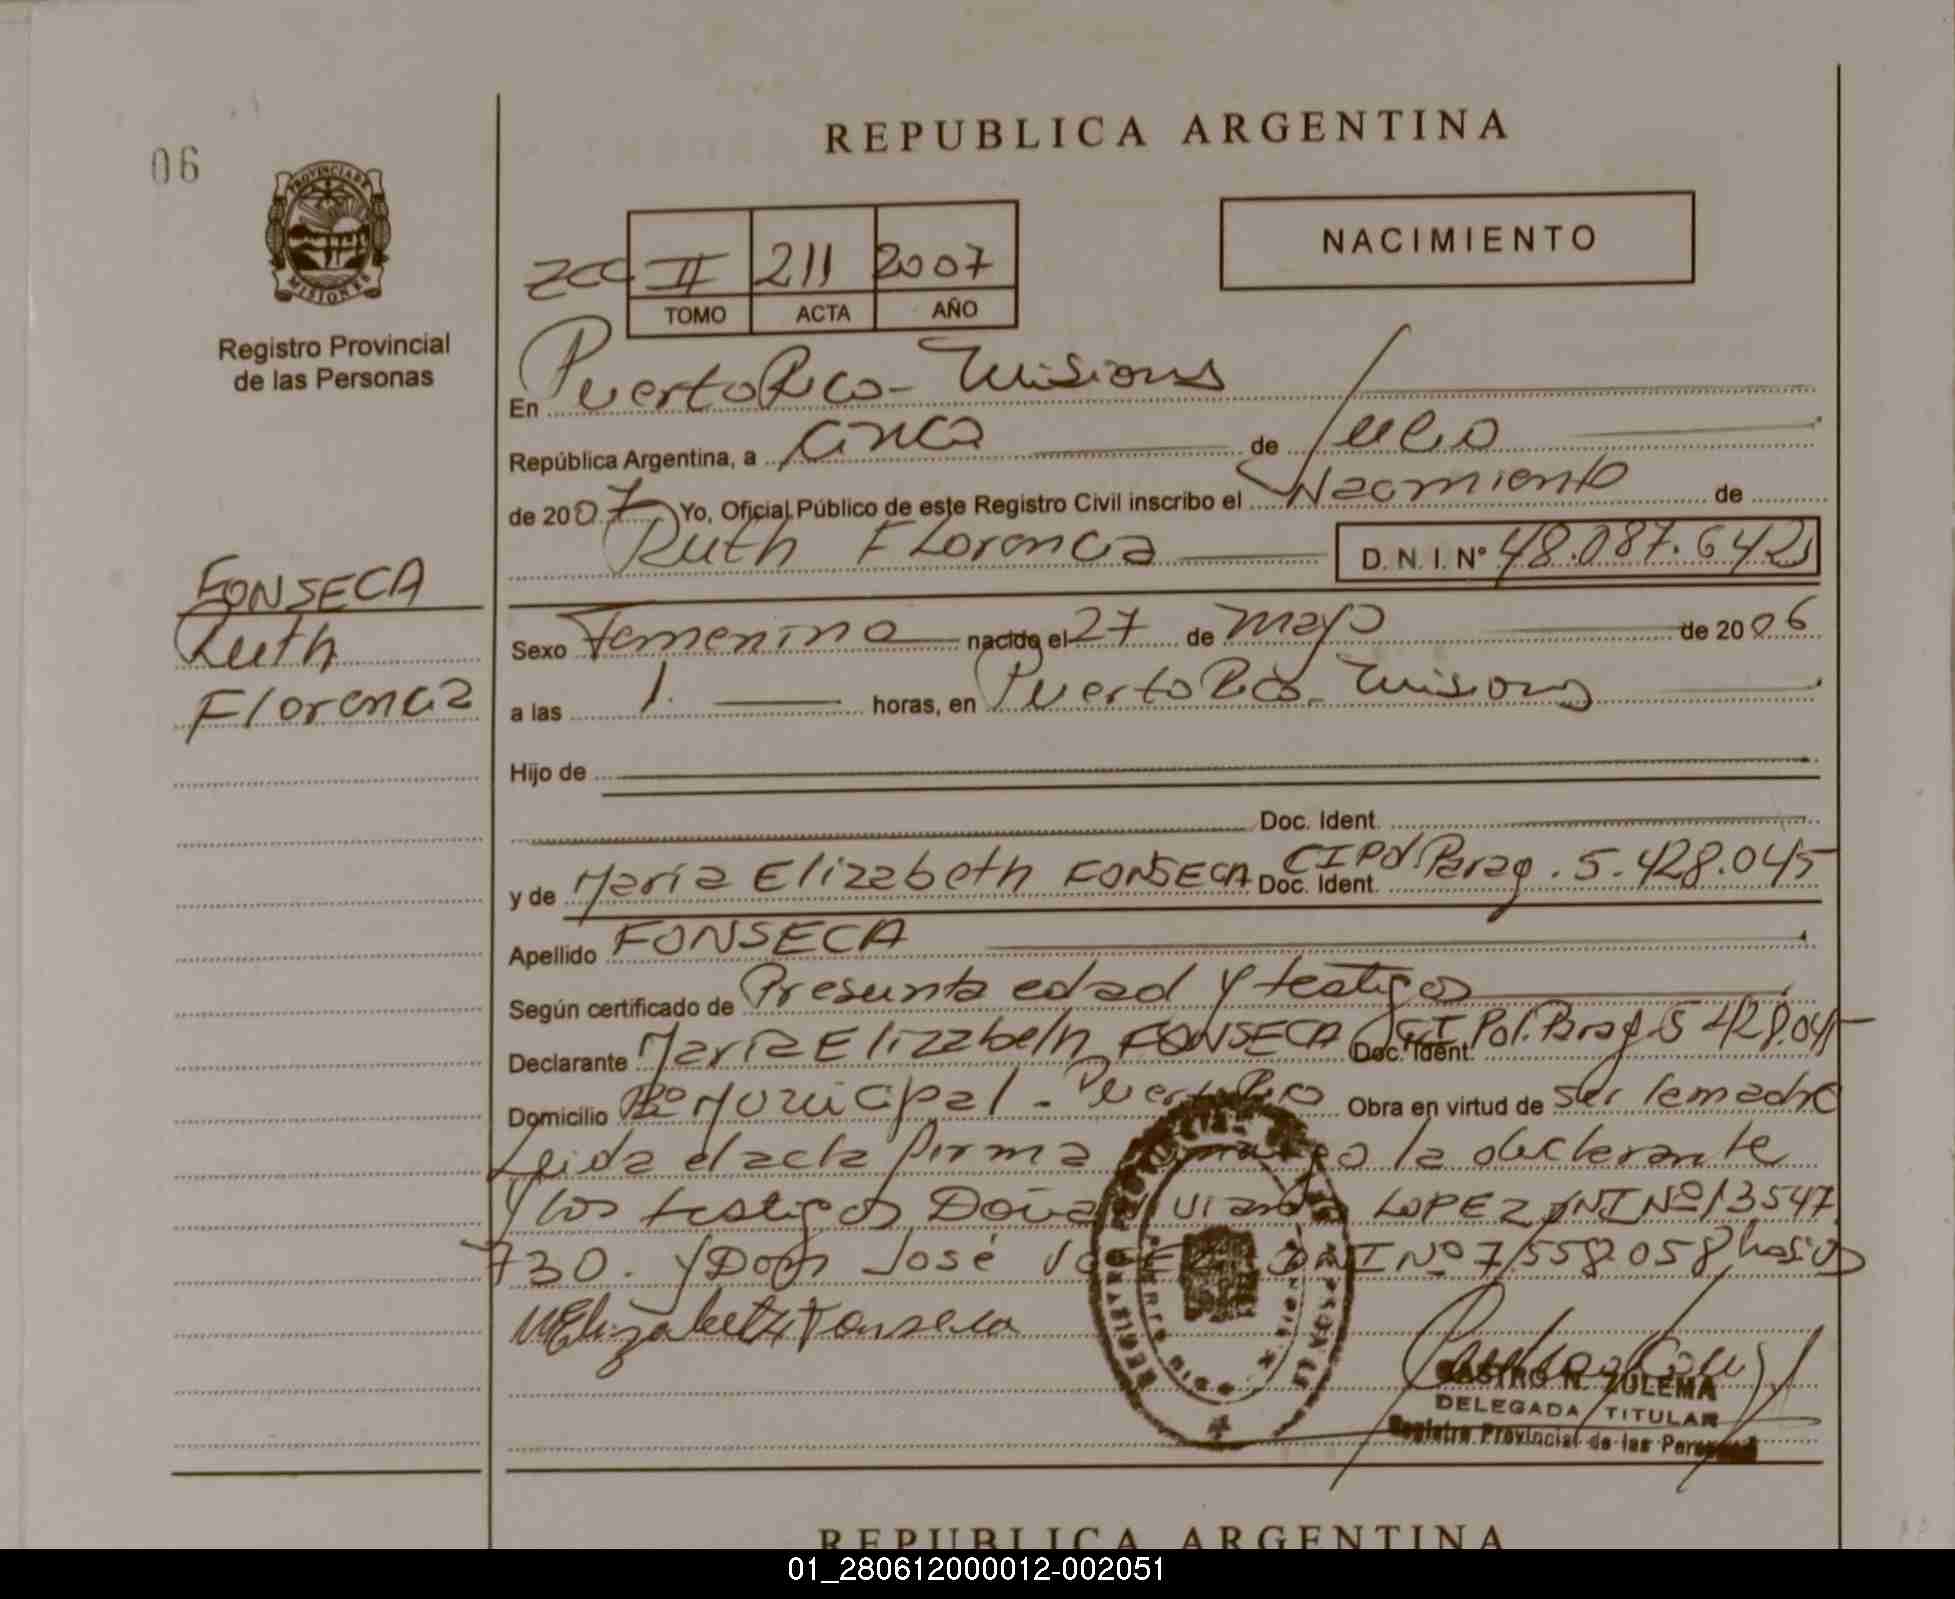 REPUBLICA ARGENTINA
06
PROVINCIA DE
MISIONES
Registro Provincial
de las Personas
NACIMIENTO
II 211 2007
TOMO ACTA AÑO
En Puerto Rico - Misiones
República Argentina, a cinco de Julio
de 2007 Yo, Oficial Público de este Registro Civil inscribo el Nacimiento de
Ruth Florencia D. N. I. N° 48.087.642
FONSECA
Ruth
Florencia
Sexo Femenino nacido el 27 de mayo de 2006
a las 1. horas, en Puerto Rico - Misiones
Hijo de
Doc. Ident.
y de María Elizabeth FONSECA Doc. Ident. CIPol Parag. 5.428.045
Apellido FONSECA
Según certificado de Presunta edad y testigos
Declarante María Elizabeth FONSECA Doc. Ident. CI Pol. Parag 5428.045
Domicilio Bº Municipal - Puerto Rico Obra en virtud de ser la madre
Leida el acta firma conmigo la declarante
y los testigos Doña LOPEZ DNI Nº 13547
730. y Don José DNI Nº 7/558.058
MElizabeth Fonseca
CASTRO N. ZULEMA
DELEGADA TITULAR
Registro Provincial de las Personas
REPUBLICA ARGENTINA
01_280612000012-002051